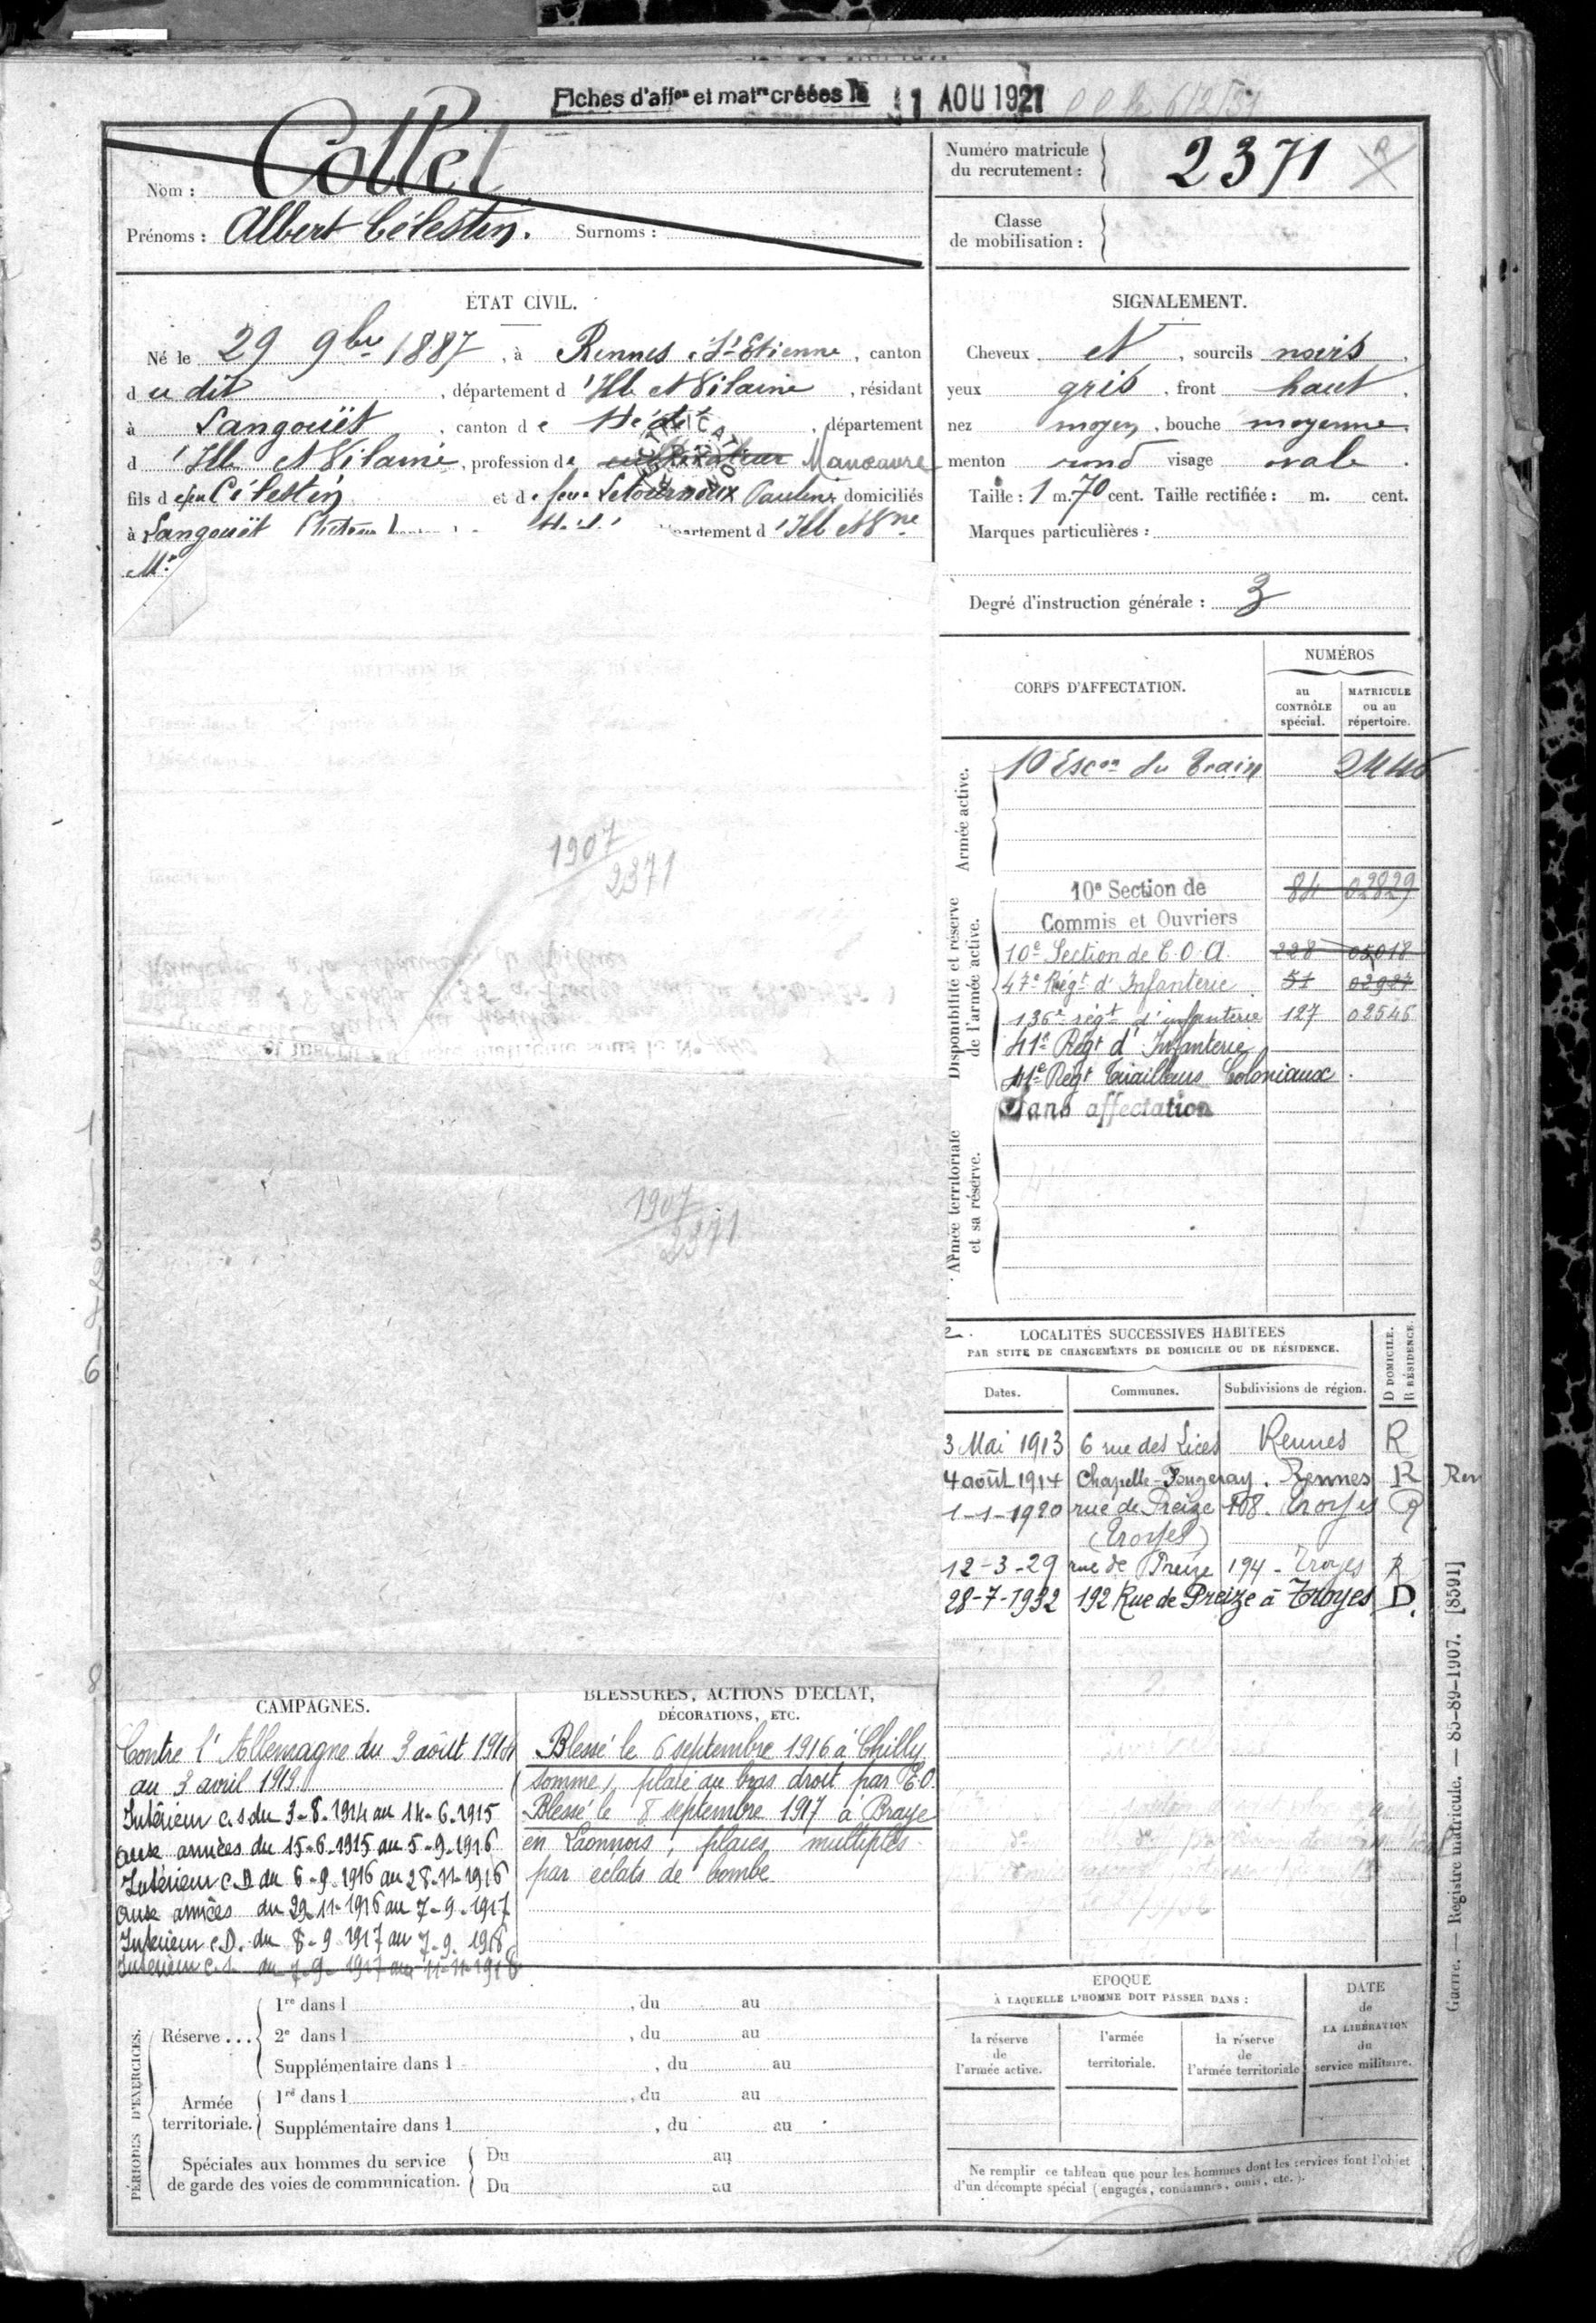 Fiches d'aff<sup>on</sup> et mat<sup>re</sup> créées le 1 AOU 1921
Nom : Collet
Prénoms : Albert Célestin. Surnoms :
Numéro matricule du recrutement : 2371
Classe de mobilisation :
ÉTAT CIVIL.
Né le 29 9bre 1887, à Rennes St-Etienne, canton
du dit, département d'Ille et Vilaine, résidant
à Langouët, canton de Hédé, département
d'Ille et Vilaine, profession de cultivateur Manœuvre
fils de feu Célestin et de feue Letournoux Pauline domiciliés
à Langouët département d'Ille et Vne
SIGNALEMENT.
Cheveux et, sourcils noirs.
yeux gris, front haut.
nez moyen, bouche moyenne
menton rond visage ovale.
Taille : 1 m. 70 cent. Taille rectifiée : m. cent.
Marques particulières :
Degré d'instruction générale : 3
CORPS D'AFFECTATION.
NUMÉROS
au CONTRÔLE spécial.
MATRICULE ou au répertoire.
Armée active.
10 Escon du Train
Disponibilité et réserve de l'armée active.
10e Section de 84 02829
Commis et Ouvriers
10e Section de C.O.A. 228 05018
47e Régt d'Infanterie 51 02927
136e régt d'infanterie 127 02546
41e Régt d'Infanterie
41e Régt Tirailleurs Coloniaux.
Sans affectation
Armée territoriale et sa réserve.
1907
2371
1907
2371
LOCALITÉS SUCCESSIVES HABITÉES
PAR SUITE DE CHANGEMENTS DE DOMICILE OU DE RÉSIDENCE.
Dates. Communes. Subdivisions de région. D DOMICILE. R RÉSIDENCE.
3 Mai 1913 6 rue des Lices Rennes R
4 août 1914 Chapelle-Fougeray. Rennes R
1-1-1920 rue de Preize 108. Troyes R
(Troyes)
12-3-29 rue de Preize 194 - Troyes R
28-7-1932 192 Rue de Preize à Troyes D.
CAMPAGNES.
Contre l'Allemagne du 3 août 1914
au 3 avril 1919
Intérieur c.s du 3-8-1914 au 14-6-1915
aux armées du 15-6-1915 au 5-9-1916
Intérieur C.D du 6-9-1916 au 28-11-1916
aux armées du 29-11-1916 au 7-9-1917
Intérieur C.D. du 8-9 1917 au 7-9-1918
Intérieur c.s. du 7-9-1917 au 11-11-1918
BLESSURES, ACTIONS D'ÉCLAT,
DÉCORATIONS, ETC.
Blessé le 6 septembre 1916 à Chilly
(Somme), plaie au bras droit par E.O.
Blessé le 8 septembre 1917 à Braye
en Laonnois, plaies multiples
par éclats de bombe
PÉRIODES D'EXERCICES.
Réserve... 1re dans l , du au
2e dans l , du au
Supplémentaire dans l , du au
Armée territoriale. 1re dans l , du au
Supplémentaire dans l , du au
Spéciales aux hommes du service
de garde des voies de communication. Du au
Du au
ÉPOQUE
À LAQUELLE L'HOMME DOIT PASSER DANS :
la réserve de l'armée active.
l'armée territoriale.
la réserve de l'armée territoriale
DATE de LA LIBÉRATION du service militaire.
Ne remplir ce tableau que pour les hommes dont les services font l'objet
d'un décompte spécial (engagés, condamnés, omis, etc.).
Guerre. — Registre matricule. — 85-89-1907. [8591]